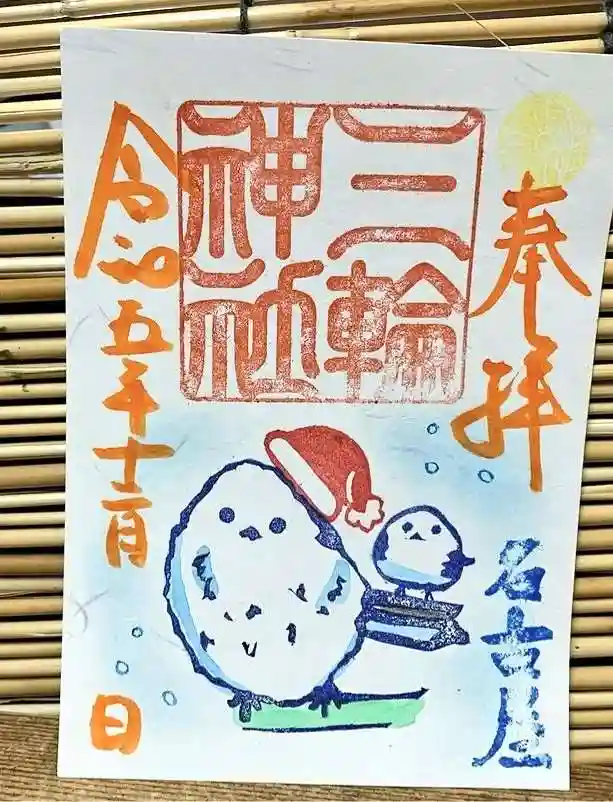 奉拝
名古屋
三輪
神社
令和五年十二月 日